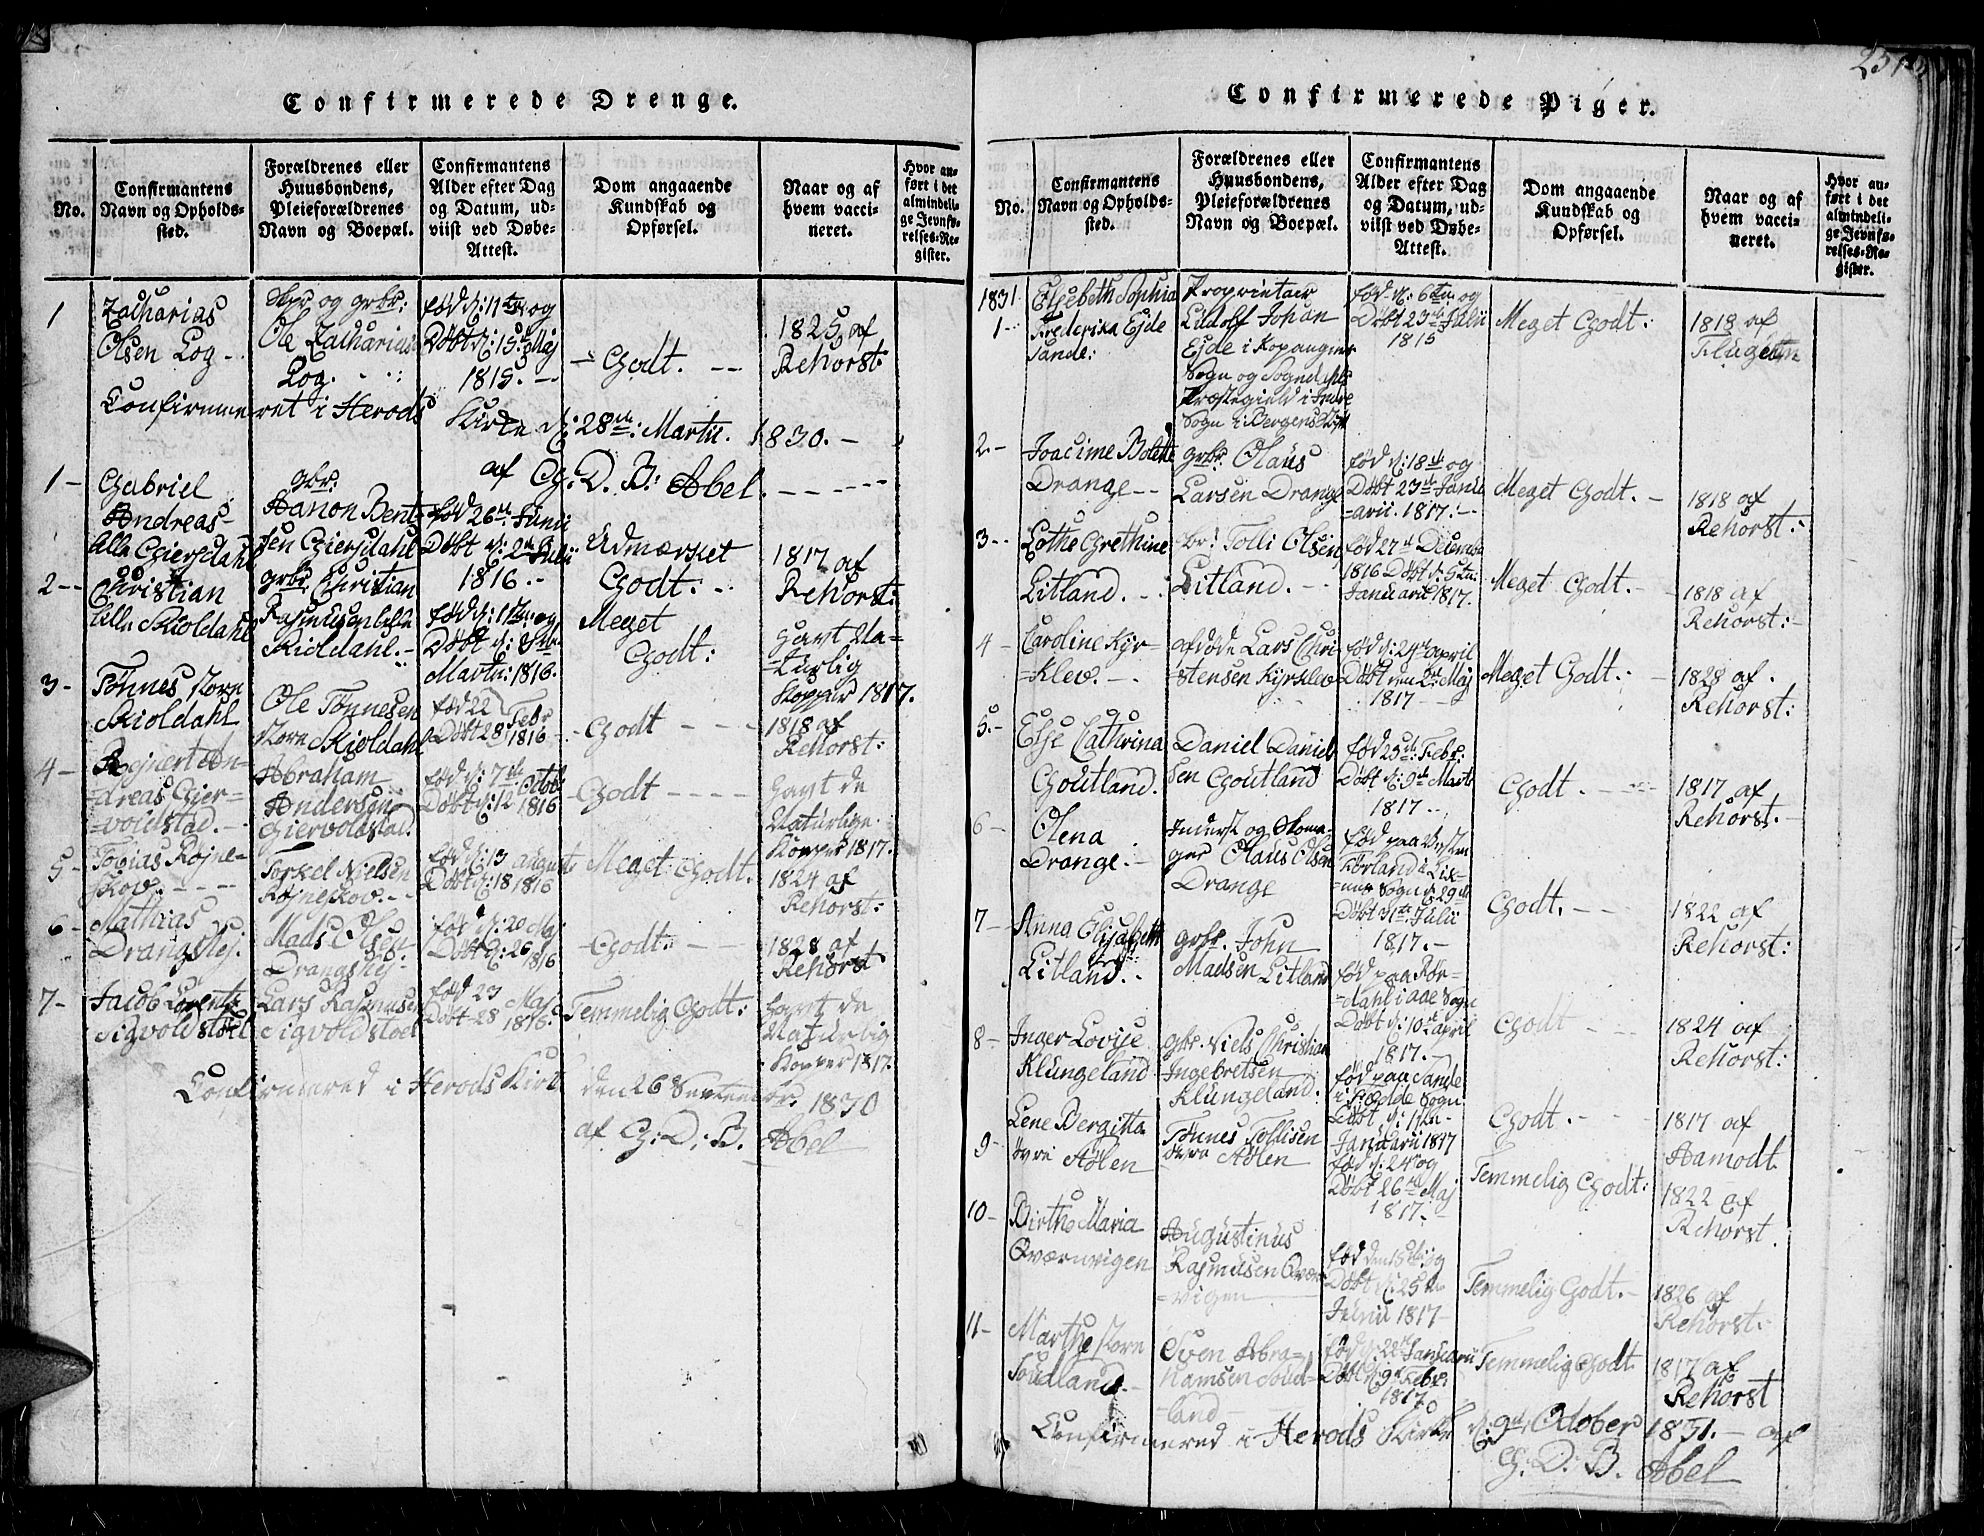 Confirmerede Drenge.
No.
Confirmantens
Navn og Opholds-
sted.
Forældrenes eller
Huusbondens,
Pleieforældrenes
Navn og Boepæl.
Confirmantens
Alder efter Dag
og Datum, ud-
viist ved Døbe-
Attest.
Dom angaaende
Kundskab og
Opførsel.
Naar og af
hvem vacci-
neret.
Hvor an-
ført i det
almindeli-
ge Jevnfø-
relses-Re-
gister.
1
Zacharias
Olsen Log -
og grbr:
Ole Zacharias
Log.
fød d: 11te og
Døbt d: 15de Maj
1815. -
- Godt. -
1825 af
Rehorst:
Confirmeret i Herods Kirke d: 28de Martii. 1830. -
af G. D. B. Abel.
1 -
Gabriel
Andreas -
lille Giersdahl
grbr.
Hanon Bent-
sen Giersdahl
fød 26de Junii
Døbt d: 2de Julii
1816. -
Udmærket
Godt:
1817 af
Rehorst:
2 -
Christian
lille Skioldahl
grbr. Christian
Rasmussen lille
Skioldahl. -
fød d: 1ste og
Døbt d:
Martii 1816.
Meget
Godt:
havt Na-
turlig
Kopper 1817.
3 -
Tønnes store
Skioldahl
Ole Tønnesen
store Skioldahl
fød 22
Døbt 28 Febr
1816 -
- Godt - -
1818 af
Rehorst:
4 -
Rejnert An-
dreas Gier-
voldstad. -
Abraham
Andersen
Giervoldstad.
fød d: 7de Octob
Døbt d: 12 1816
- Godt - - -
Havt de
Naturlige
Kopper 1817.
5 -
Tobias Røjne-
skov. - - -
Torkel Nielsen
Røjneskov. -
fød d: 13 august
Døbt d: 18 1816
Meget Godt.
1824 af
Rehorst:
6 -
Mathias
Drangshej.
Mads Olsen
Drangshej -
fød d: 20 Maj
Døbt d: 26 1816
- Godt: - -
1828 af
Rehorst
7 -
Jacob Lorentz
Sigvoldstoel
Lars Rasmusen
Sigvoldstoel
fød 23 Maj
Døbt 28 1816.
Temmelig Godt:
havt de
Naturlig
Kopper 1817.
Confirmered i Herods Kirk den 26 Septembr. 1830
af G: D: B. Abel
Confirmerede Piger.
No.
Confirmantens
Navn og Opholds-
sted.
Forældrenes eller
Huusbondens,
Pleieforældrenes
Navn og Boepæl.
Confirmantens
Alder efter Dag
og Datum, ud-
viist ved Døbe-
Attest.
Dom angaaende
Kundskab og
Opførsel.
Naar og af
hvem vacci-
neret.
Hvor an-
ført i det
almindeli-
ge Jevnfø-
relses-Re-
gister.
1831.
1 -
Elsebeth Sophia
Frederika Ejde
Sande:
Proprietair
Ludolf Johan
Ejde i Kopangers
Sogn og Sogndahls
Præstegield i Indre
Sogn i Bergens Stift
fød d: 6te og
Døbt 23de Julii
1815
Meget Godt:
1818 af
2. -
Joacime Bolette
Drange - -
grbr. Olaus
Larsen Drange
fød d: 18de og
Døbt 23de Janu-
arii. 1817. -
Meget Godt. -
1818 af
Rehorst: -
3. -
Lothe Grethine
Litland. -
br! Tolli Olsen
Litland. -
fød 27de Decemb
1816 Døbt d: 5te
Januarii 1817.
Meget Godt. -
1818 af
Rehorst: -
4 -
Caroline Kyr-
klev. -
afdøde Lars Chri
stensen Kyrklev
fød d: 24de april
Døbt den 2den Maj
1817 -
Meget Godt: -
1828 af.
Rehorst:
5. -
Else Cathrina
Goutland.
Daniel Daniel
sen Goutland
fød 25de Febr:
Døbt d: 9de Marts
1817. -
Godt. - -
1817 af
Rehorst. -
6 -
Olena
Drange: -
Inderst og Skoma-
ger Olaus Olsen
Drange
fød paa Vesten
Førland i Lis-
Sogn d: 29de
Døbt 31te Julii
1817. -
Godt. - -
1822 af
Rehorst:
7 -
Anna Elisabeth
Litland.
grbr. John
Madsen Litland
fød paa Rør-
dahl i aae Sogn
Døbt d: 10de april
1817. -
Godt - -
1824 af
Rehorst:
8 -
Inger Lovise
Klungeland
gbr. Niels Christian
Ingebretsen
Klungeland.
fød paa Sande
i Sogn
Døbt d: 1ste
Januarii 1817
Godt. - -
1817 af
Aamodt.
9 -
Lene Bergitta
øvre Aølen
Tønnes Tollisen
øvre Aølen
fød d: 24de og
Døbt 26de Maj
1817. -
Temmelig Godt:
1822 af
Rehorst.
10 -
Birthe Maria
Qværnvigen
Augustinus
Rasmusen Qværn
vigen
fød den 15de og
Døbt d: 25de
Junii 1817 -
Temmelig Godt. -
1826 af
Rehorst: -
11 -
Marthe store
Soudland. -
Sven Abra-
hamsen Soud-
land -
fød d: 22de Januarii
Døbt d: 9de Febr:
1817.
Temmelig Godt.
1817 af
Rehorst
Confirmered i Herods Kirke d: 9de October 1831. - af
G. D. B. Abel